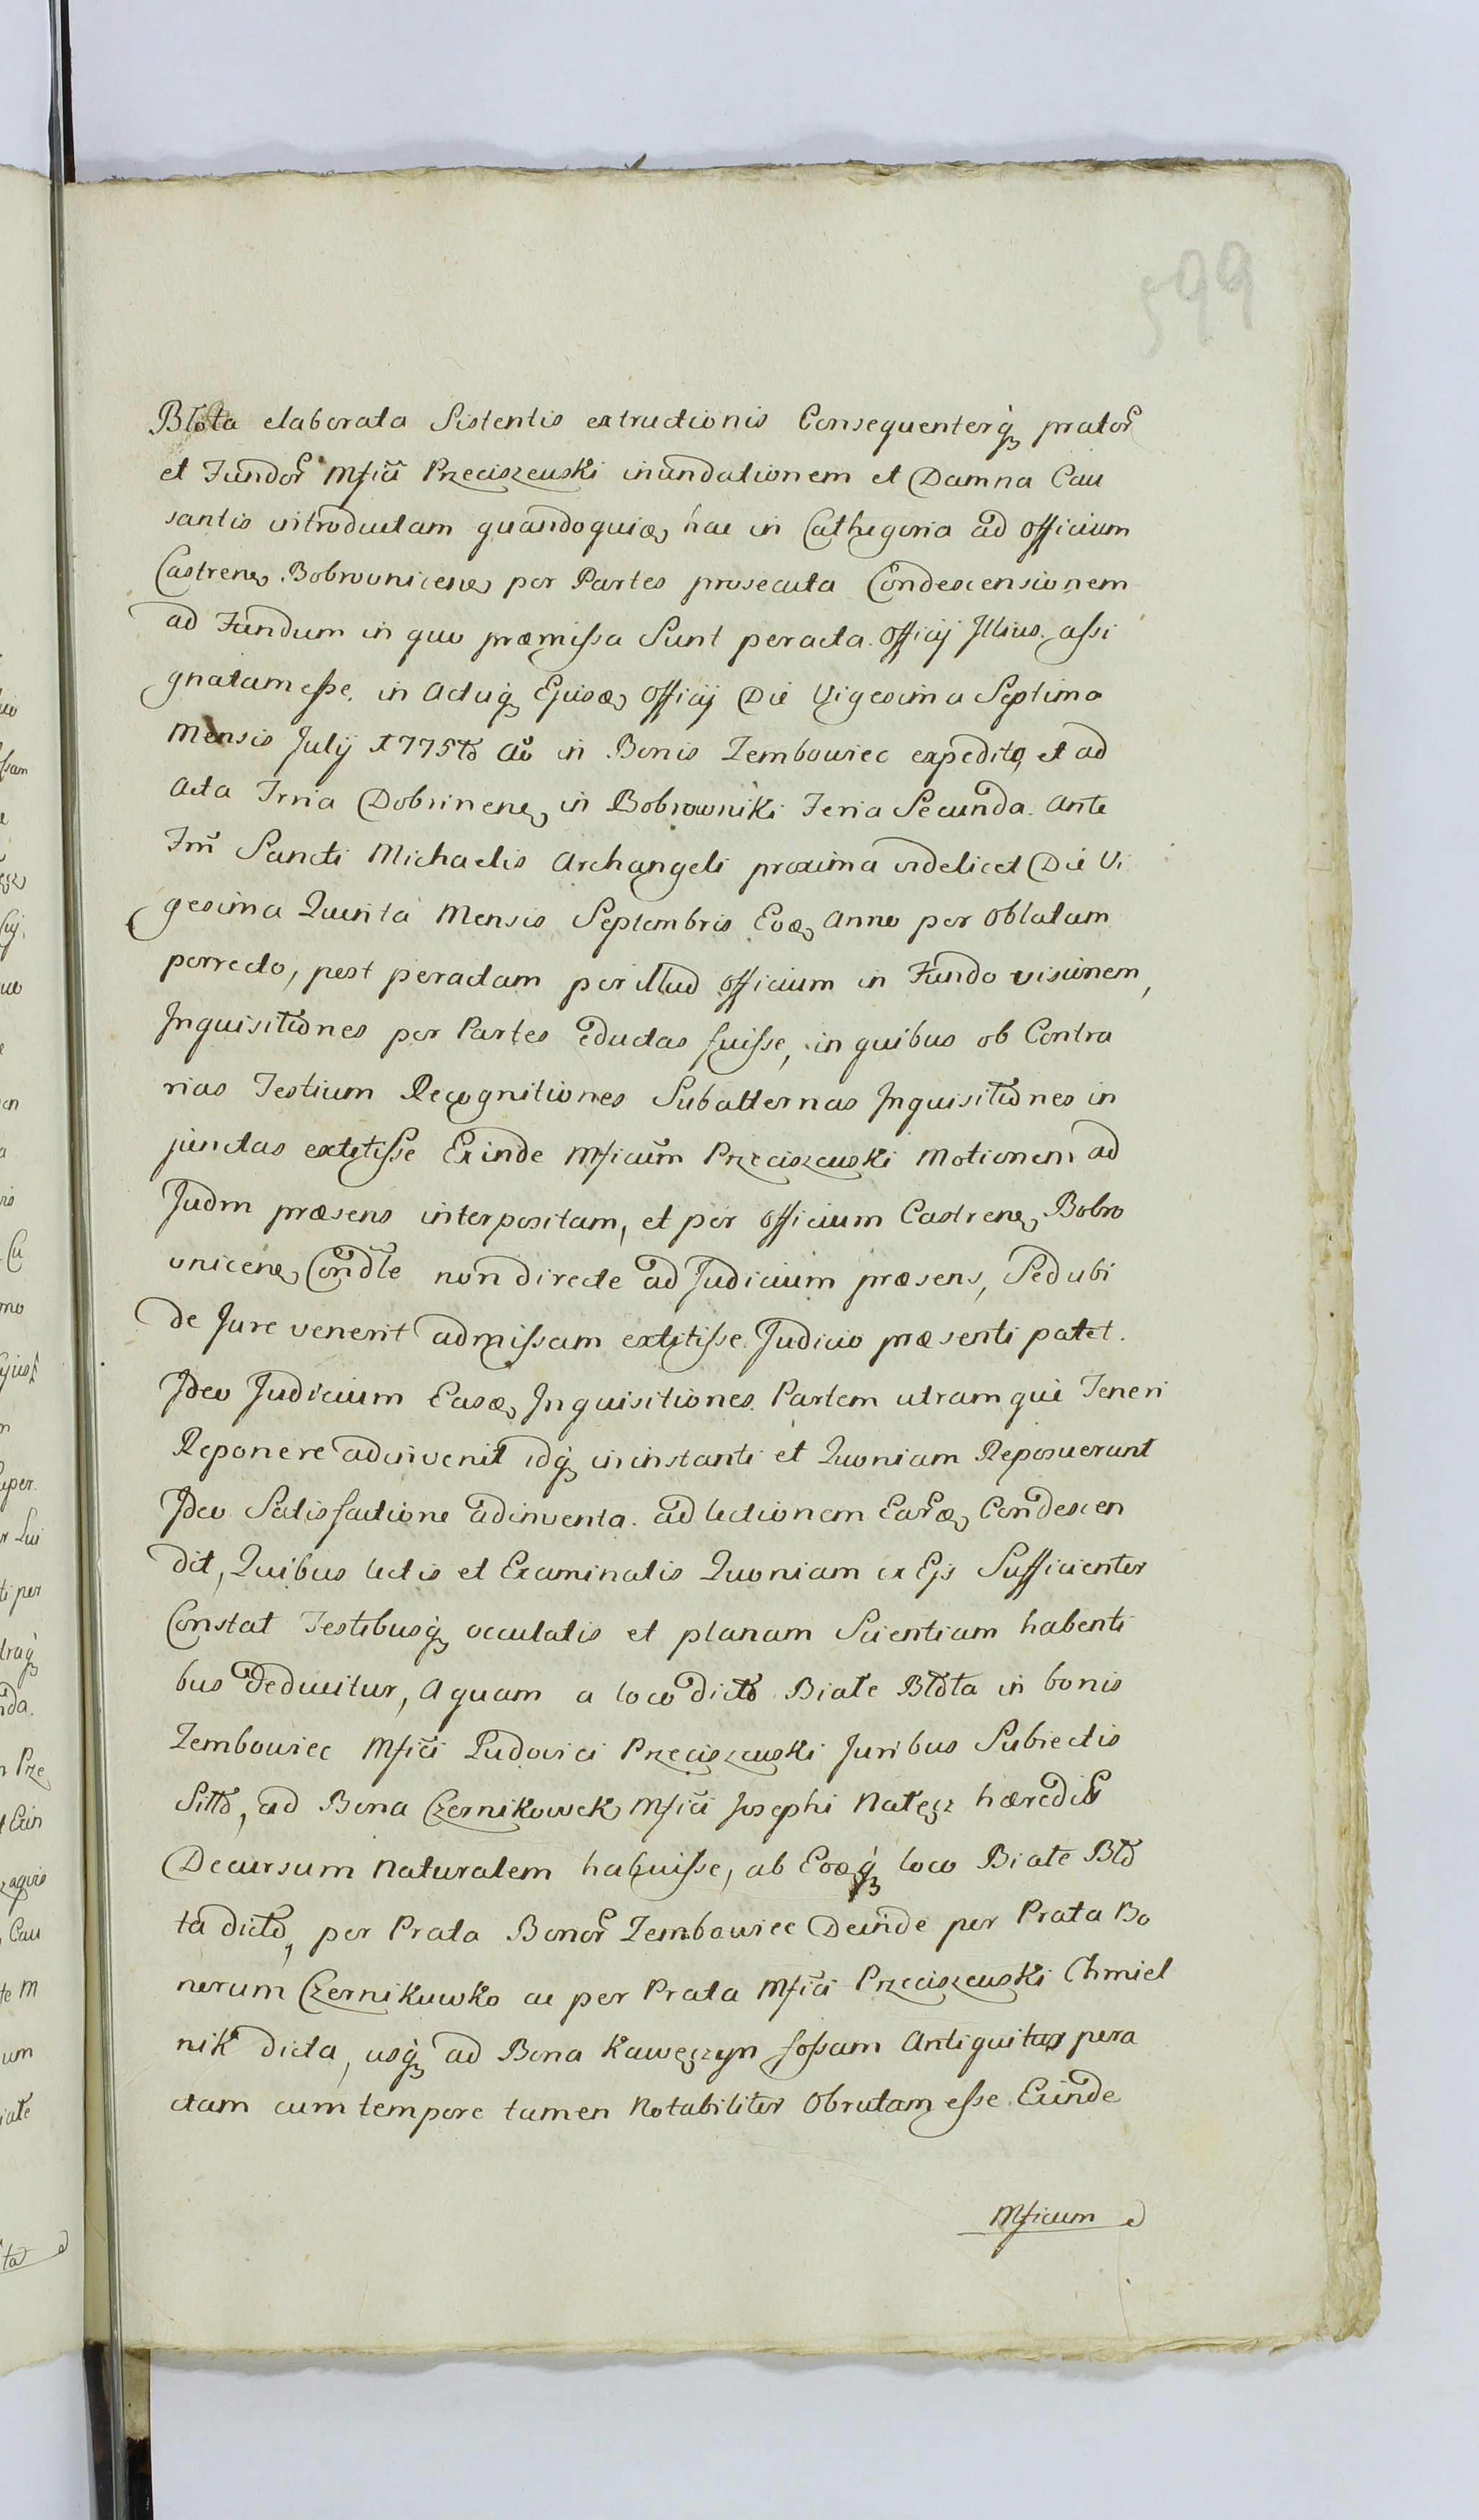 599
Błota elaborata Sistentis extructionis Consequenterq̃ prator̃
et Fundor̃ Mficĩ Przeciszewski inundationem et Damna Cau
santis introductam quandoquidẽ hac in Cathegoria ad Officium
Castrenẽ Bobrownicenẽ per Partes prosecuta Condescensionem
ad Fundum in quo præmissa Sunt peracta Officij Illius assi
gnatam esse, in Actuq̃ Ejusdẽ Officij Die Vigesima Septima
Mensis Julij 1775to Ao in Bonis Zembowiec expedito, et ad
Acta Trria Dobrinenẽ in Bobrowniki Feria Secunda Ante
Fm̃ Sancti Michaelis Archangeli proxima videlicet Die Vi
gesima Quinta Mensis Septembris Eodẽ Anno per Oblatam
porrecto, post peractam per illud Officium in Fundo visionem,
Inquisitiones per Partes eductas fuisse, in quibus ob Contra
rias Testium Recognitiones Subalternas Inquisitiones in
junctas extitisse Exinde Mficum̃ Przeciszewski Motionem ad
Judm præsens interpositam, et per Officium Castrenẽ Bobro
vnicenẽ Condl̃e non directe ad Judicium præsens, Sed ubi
de Jure venerit admissam extitisse Judicio præsenti patet.
Ideo Judicium Easdẽ Inquisitiones Partem utramque Teneri
Reponere adinvenit idq̃ in instanti et Quoniam Reposuerunt
Ideo Satisfactione adinventa ad lectionem Ear̃dẽ Condescen
dit, Quibus lectis et Examinatis Quoniam ex Ejs Sufficienter
Constat Testibusq̃ occulatis et planam Scientiam habenti
bus deducitur, Aquam a loco dicto Białe Błota in bonis
Zembowiec Mficĩ Ludovici Przeciszewski Juribus Subiectis
Sitto, ad Bona Czernikowek Mficĩ Josephi Nałęcz hæredis
Decursum Naturalem habuisse, ab Eodẽq̃ loco Białe Bło
ta dicto, per Prata Bonor̃ Zembowiec Deinde per Prata Bo
norum Czernikowko ac per Prata Mficĩ Przeciszewski Chmiel
nik dicta, usq̃ ad Bona Kawęczyn fossam Antiquitus pera
ctam cum tempore tamen Notabiliter Obrutam esse Exinde
Mficum